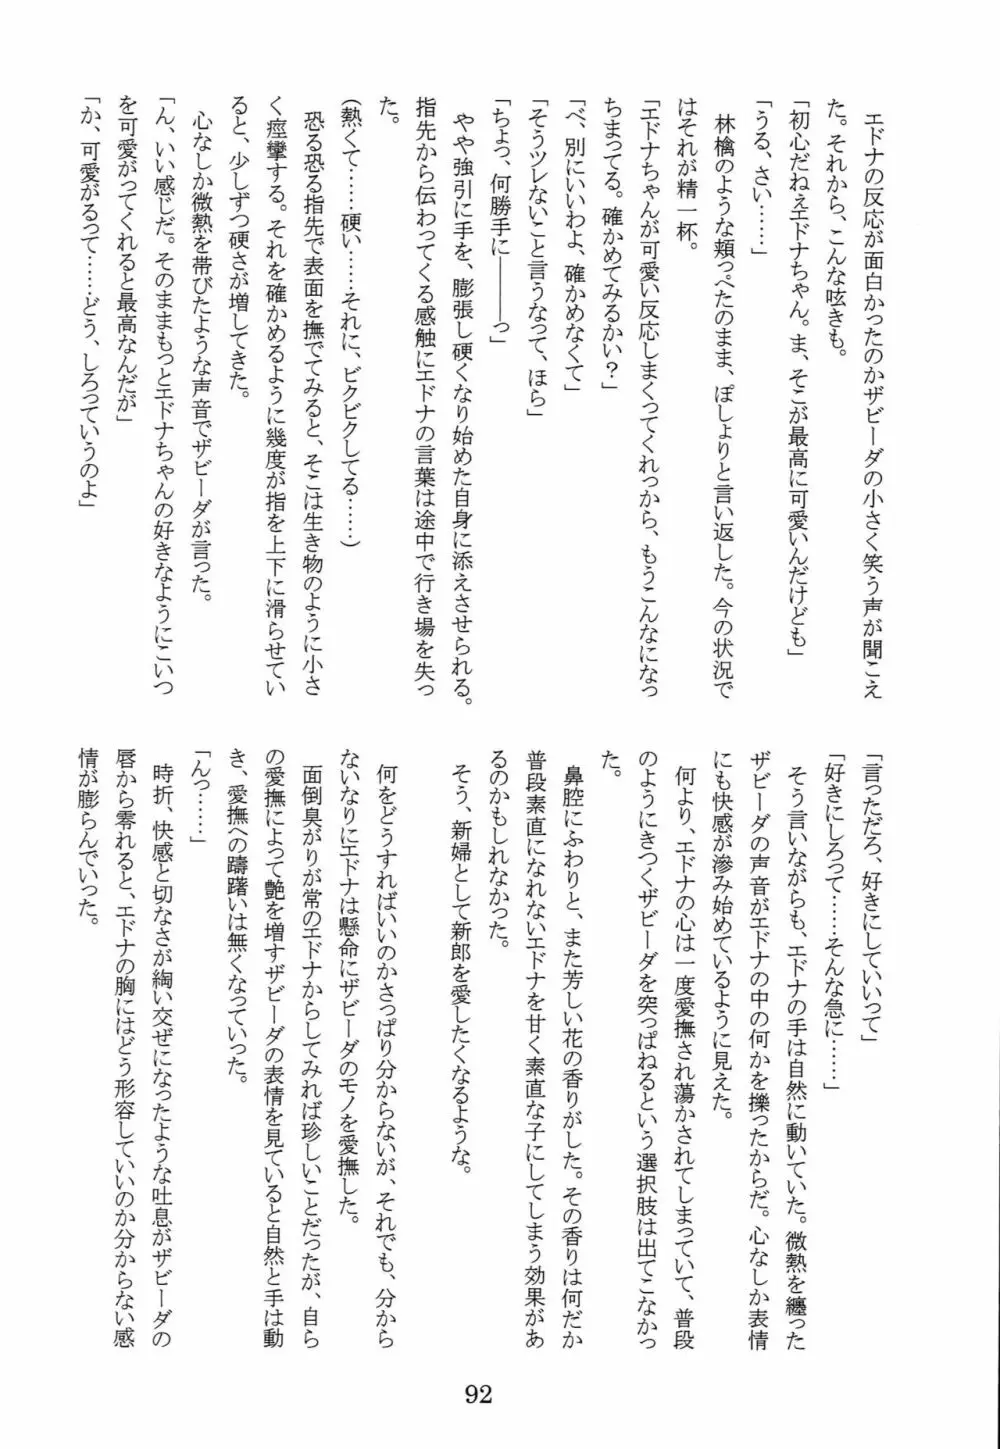 エドナの反応が面白かったのかザビーダの小さく笑う声が聞こえ
た。それから、こんな呟きも。
「初心だねえエドナちゃん。ま、そこが最高に可愛いんだけども」
「うる、さい……」
林檎のような頬っぺたのまま、ぽしょりと言い返した。今の状況で
はそれが精一杯。
「エドナちゃんが可愛い反応しまくってくれっから、もうこんなになっ
ちまってる。確かめてみるかい？」
「べ、別にいいわよ、確かめなくて」
「そうツレないこと言うなって、ほら」
「ちょっ、何勝手に――っ」
やや強引に手を、膨張し硬くなり始めた自身に添えさせられる。
指先から伝わってくる感触にエドナの言葉は途中で行き場を失っ
た。
（熱くて……硬い……それに、ビクビクしてる……）
恐る恐る指先で表面を撫でてみると、そこは生き物のように小さ
く痙攣する。それを確かめるように幾度が指を上下に滑らせてい
ると、少しずつ硬さが増してきた。
心なしか微熱を帯びたような声音でザビーダが言った。
「ん、いい感じだ。そのままもっとエドナちゃんの好きなようにこいつ
を可愛がってくれると最高なんだが」
「か、可愛がるって……どう、しろっていうのよ」
「言っただろ、好きにしていいって」
「好きにしろって……そんな急に……」
そう言いながらも、エドナの手は自然に動いていた。微熱を纏った
ザビーダの声音がエドナの中の何かを擽ったからだ。心なしか表情
にも快感が滲み始めているように見えた。
何より、エドナの心は一度愛撫され蕩かされてしまっていて、普段
のようにきつくザビーダを突っぱねるという選択肢は出てこなかっ
た。
鼻腔にふわりと、また芳しい花の香りがした。その香りは何だか
普段素直になれないエドナを甘く素直な子にしてしまう効果があ
るのかもしれなかった。
そう、新婦として新郎を愛したくなるような。
何をどうすればいいのかさっぱり分からないが、それでも、分から
ないなりにエドナは懸命にザビーダのモノを愛撫した。
面倒臭がりが常のエドナからしてみれば珍しいことだったが、自ら
の愛撫によって艶を増すザビーダの表情を見ていると自然と手は動
き、愛撫への躊躇いは無くなっていった。
「んっ……」
時折、快感と切なさが綯い交ぜになったような吐息がザビーダの
唇から零れると、エドナの胸にはどう形容していいのか分からない感
情が膨らんでいった。
92